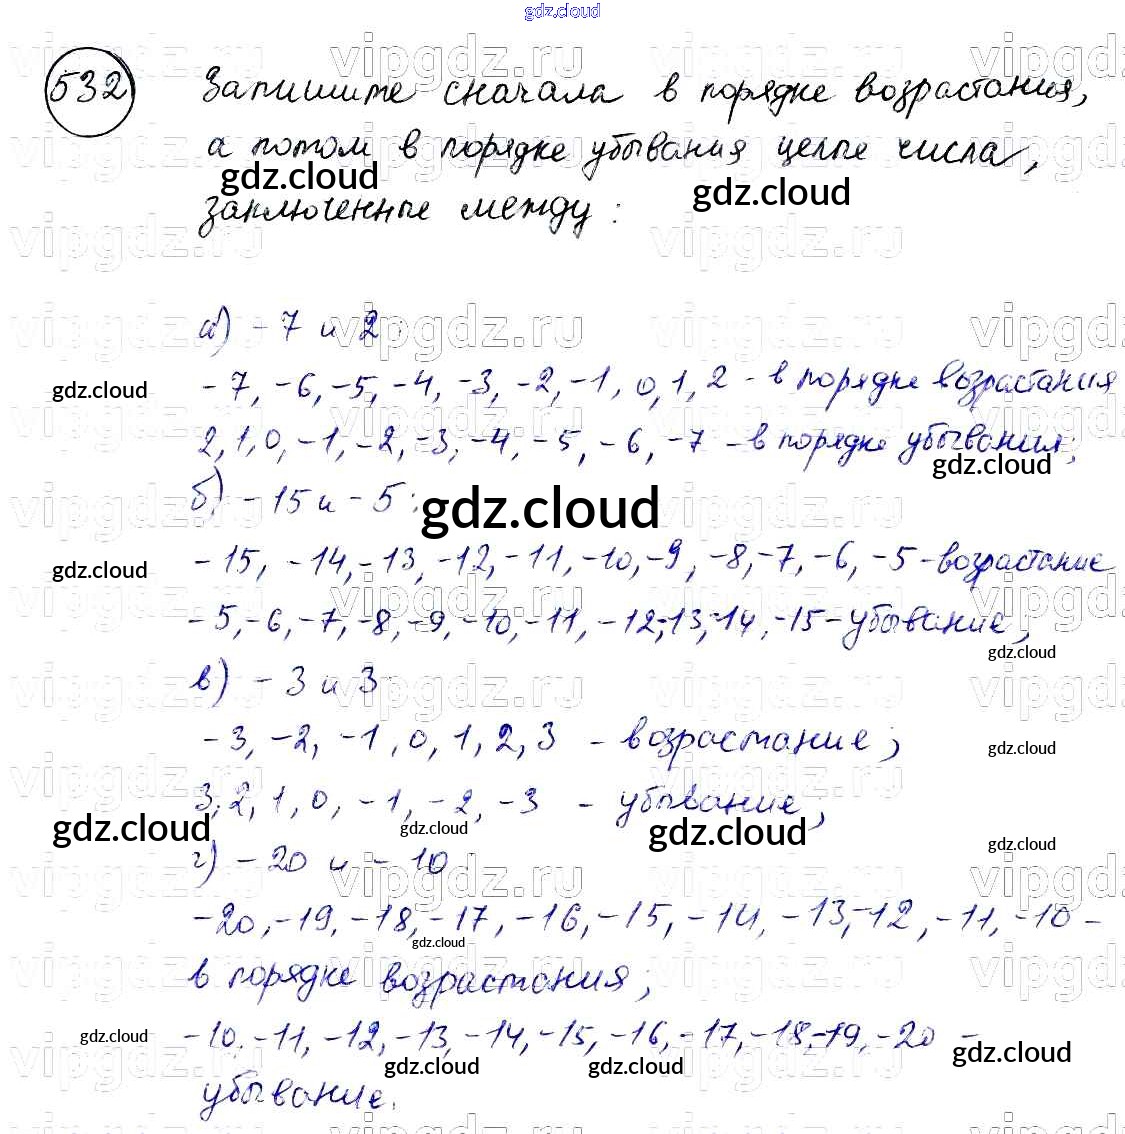 gdz.cloud
532 Запишите сначала в порядке возрастания,
а потом в порядке убывания целые числа,
gdz.cloud gdz.cloud
заключенные между:
а) -7 и 2
gdz.cloud
-7, -6, -5, -4, -3, -2, -1, 0, 1, 2 - в порядке возрастания
2, 1, 0, -1, -2, -3, -4, -5, -6, -7 - в порядке убывания;
gdz.cloud
б) -15 и -5:
gdz.cloud
-15, -14, -13, -12, -11, -10, -9, -8, -7, -6, -5 - возрастание
gdz.cloud
-5, -6, -7, -8, -9, -10, -11, -12, -13, -14, -15 - убывание;
gdz.cloud
в) -3 и 3
-3, -2, -1, 0, 1, 2, 3 - возрастание;
gdz.cloud
3, 2, 1, 0, -1, -2, -3 - убывание;
gdz.cloud gdz.cloud gdz.cloud
gdz.cloud
г) -20 и -10
-20, -19, -18, -17, -16, -15, -14, -13, -12, -11, -10 -
gdz.cloud
в порядке возрастания;
-10, -11, -12, -13, -14, -15, -16, -17, -18, -19, -20 -
gdz.cloud gdz.cloud gdz.cloud gdz.cloud
убывание.
vipgdz.ru vipgdz.ru vipgdz.ru vipgdz.ru